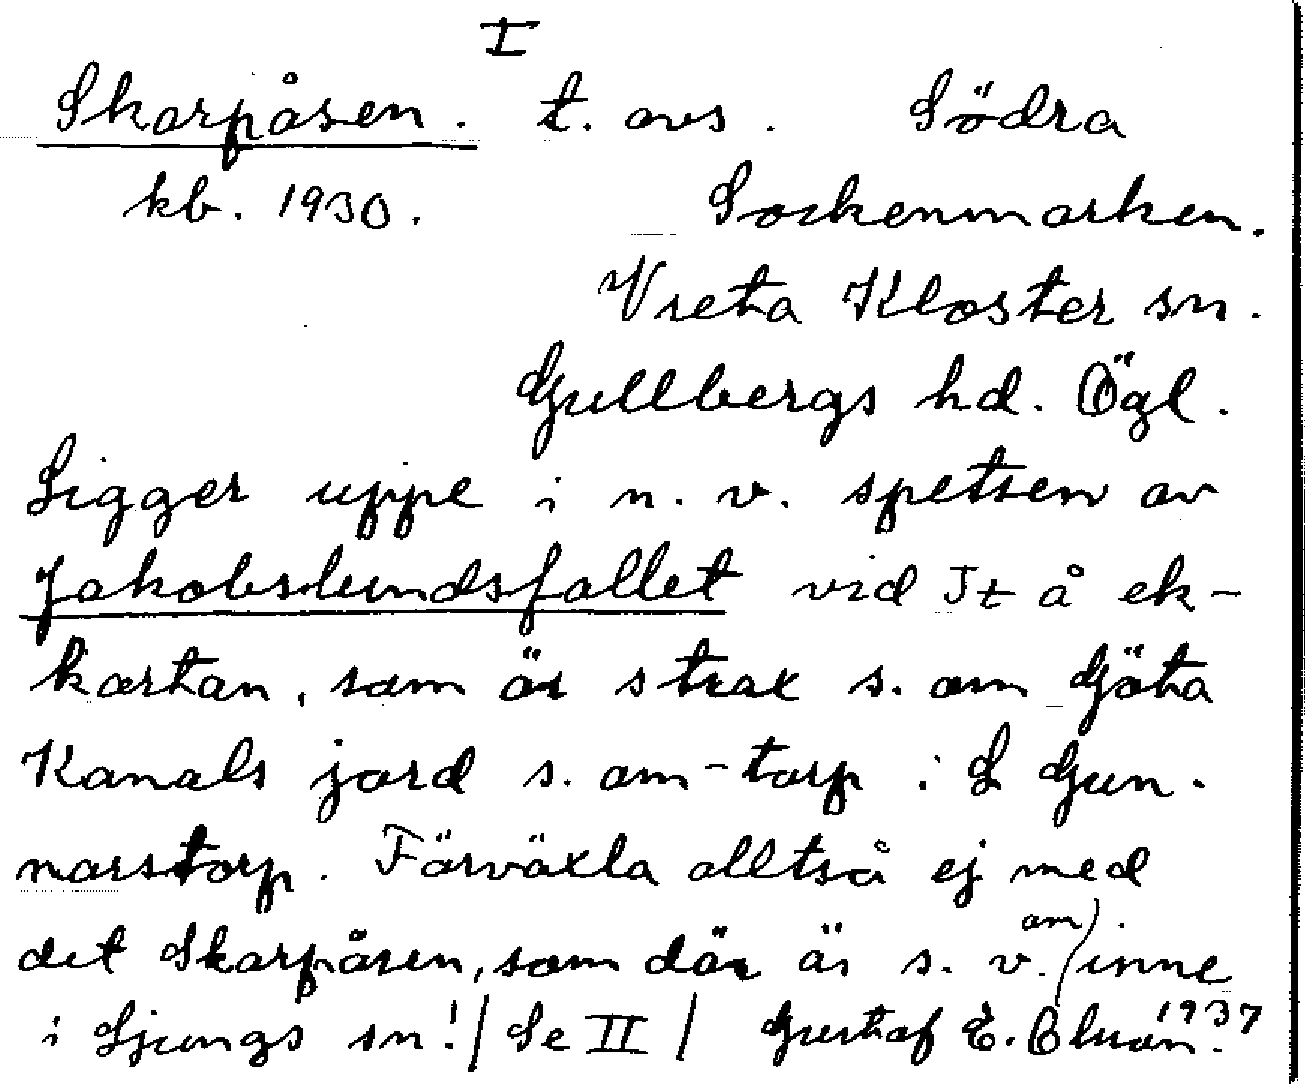 I
Skarpåsen. t. avs. Södra
kb. 1930. Sockenmarken.
Vreta Kloster sn.
Gullbergs hd. Ögl.
Ligger uppe i n. v. spetsen av
Jakobslundsfallet vid Jt å ek-
kartan, som är strax s. om Göta
Kanals jord s. om -torp i L Gun-
narstorp. Förväxla alltså ej med
det Skarpåsen, som där är s. v. om / inne
i Ljungs sn! / Se II / Gustaf E. 1937